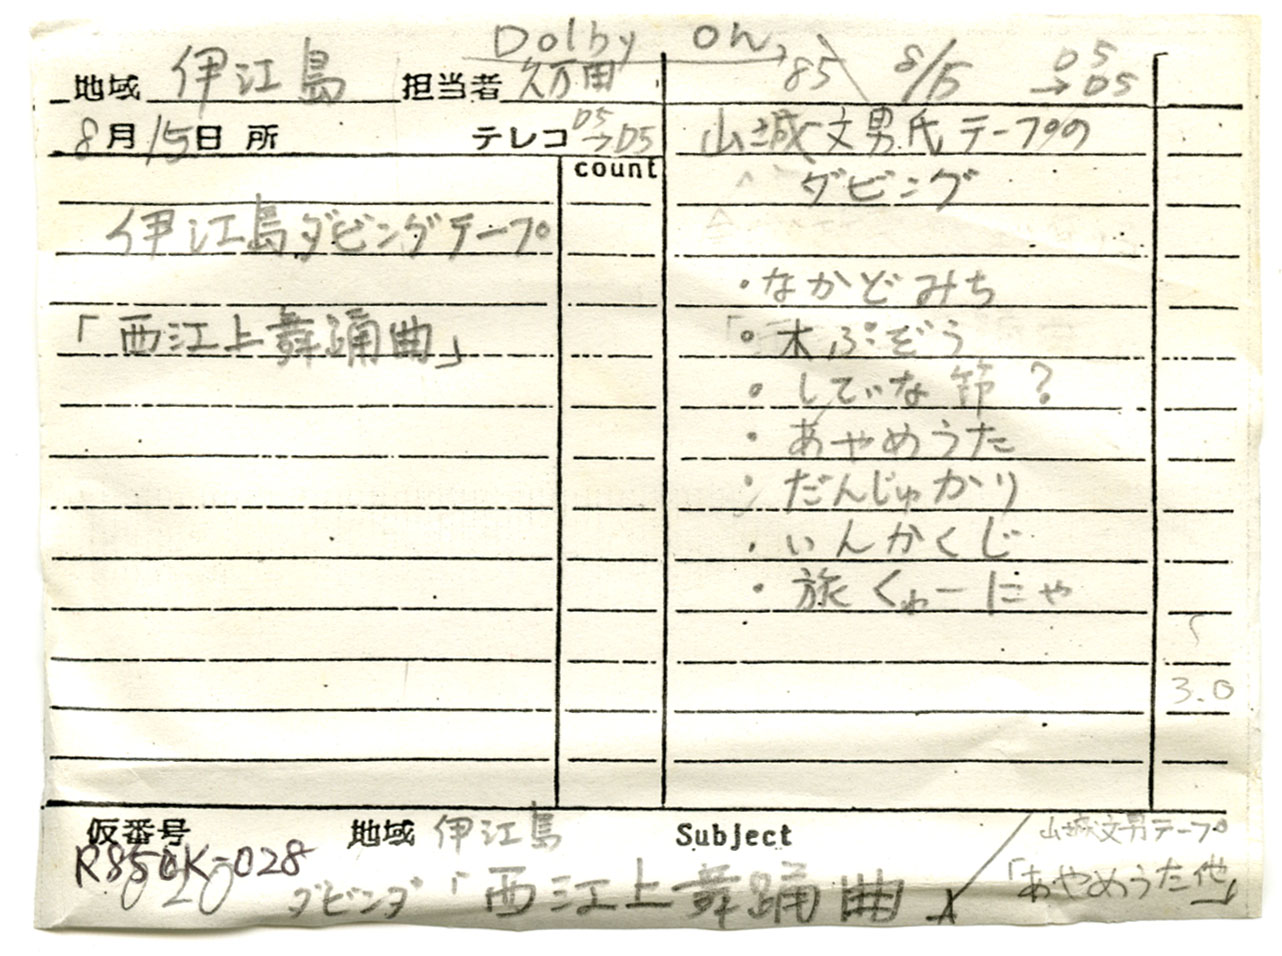 Dolby on
地域 伊江島 担当者 久万田
'85 8/15 D5→D5
8月15日 所 テレコ D5→D5
count
伊江島ダビングテープ
「西江上舞踊曲」
山城文男氏テープの
ダビング
・なかどみち
「・木ぶぞう
・してぃな節?
・あやめうた
・だんじゅかり
・いんかくじ
・旅くゎーにゃ
3.0
仮番号 地域 伊江島 Subject
R850K-028
020
ダビング「西江上舞踊曲」
山城文男テープ
「あやめうた他」